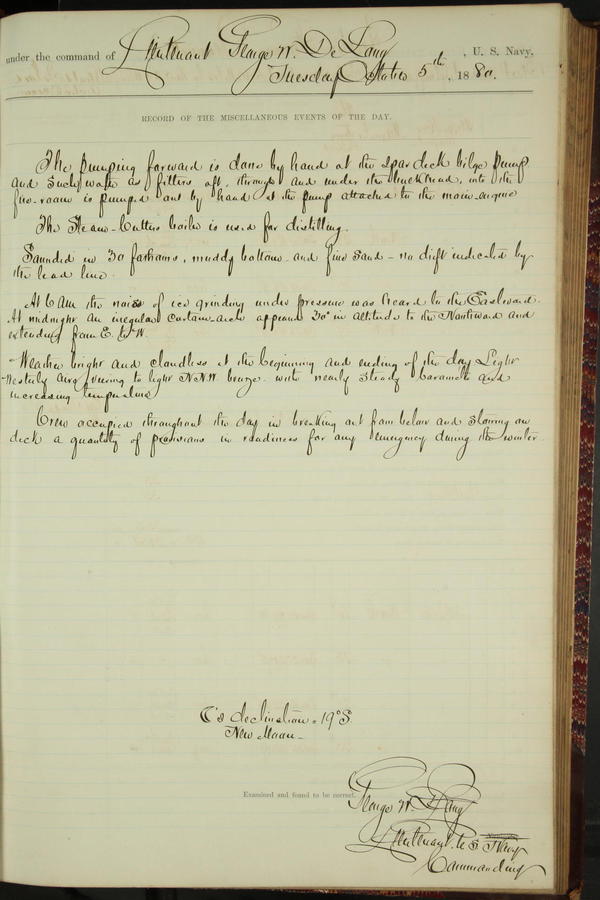 under the command of Lieutenant George W. De Long, U. S. Navy,
Tuesday October 5th, 1880.
RECORD OF THE MISCELLANEOUS EVENTS OF THE DAY.
The pumping forward is done by hand at the spar deck bilge pump
and such water as filters aft, through and under the bulkhead, into the
fire-room is pumped out by hand at the pump attached to the main-engine
The Steam-Cutters boiler is used for distilling.
Sounded in 30 fathoms, muddy bottom and fine sand - no drift indicated by
the lead line.
At 6 AM the noise of ice grinding under pressure was heard to the Eastward.
At midnight an irregular curtain-arch appeared 30° in altitude to the Northward and
extending from E. to W.
Weather bright and cloudless at the beginning and ending of the day Light
Westerly airs veering to light N.N.W. breeze with nearly steady barometer and
increasing temperature
Crew occupied throughout the day in breaking out from below and stowing on
deck a quantity of provisions in readiness for any emergency during the winter.
declination = 19° S.
New Moon -
Examined and found to be correct.
George W. De Long
Lieutenant U S Navy
Commanding